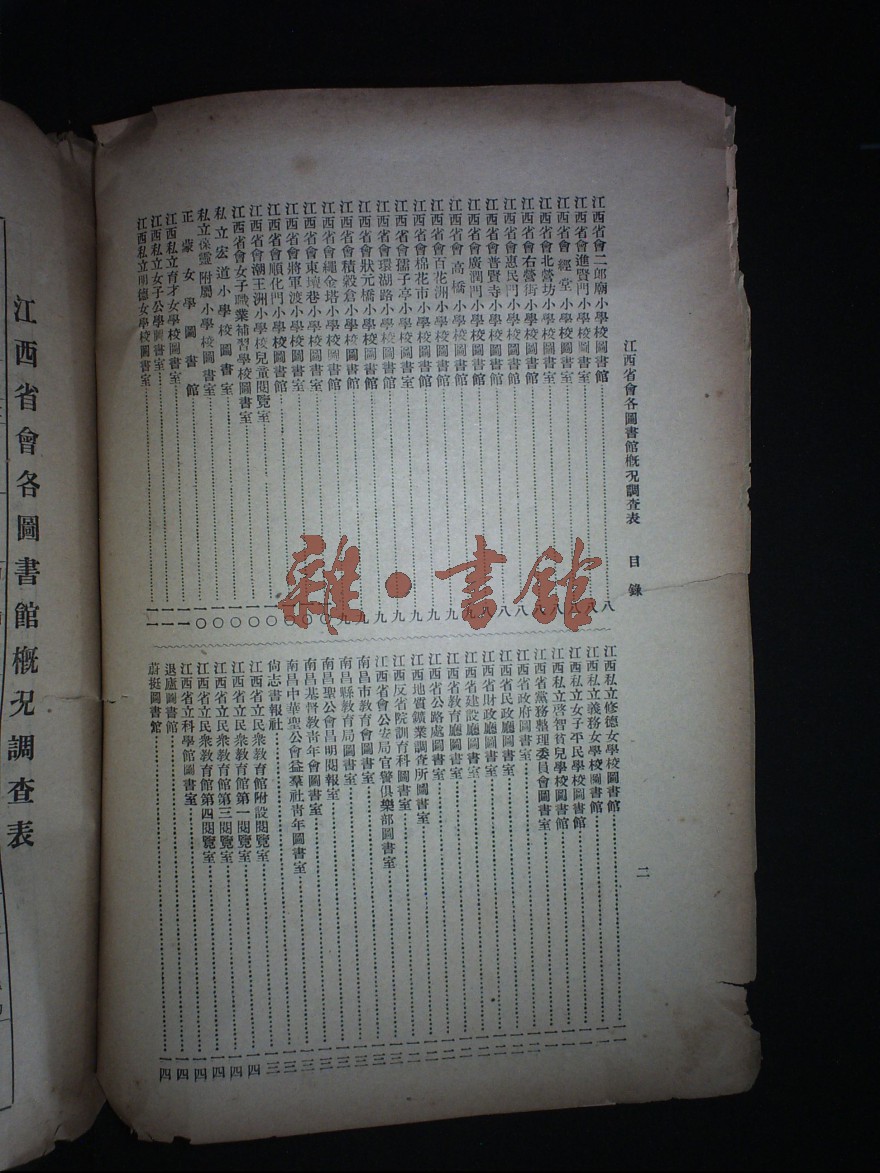 江西省會各圖書館概況調查表　目錄
二
江西省會二郎廟小學校圖書館……八
江西省會進賢門小學校圖書館……八
江西省會經堂小學校圖書館……八
江西省會北營坊小學校圖書室……八
江西省會右營街小學校圖書館……八
江西省會惠民門小學校圖書館……八
江西省會普賢寺小學校圖書館……八
江西省會廣潤門小學校圖書館……九
江西省會高橋小學校圖書館……九
江西省會百花洲小學校圖書館……九
江西省會棉花市小學校圖書館……九
江西省會孺子亭小學校圖書室……九
江西省會環湖路小學校圖書館……九
江西省會狀元橋小學校圖書館……九
江西省會積穀倉小學校圖書館……九
江西省會繩金塔小學校圖書館……一〇
江西省會東壇巷小學校圖書室……一〇
江西省會將軍渡小學校圖書館……一〇
江西省會順化門小學校圖書館……一〇
江西省會潮王洲小學校兒童閱覽室……一〇
江西省會女子職業補習學校圖書室……一〇
私立宏道小學校圖書室……一〇
私立葆靈附屬小學校圖書室……一〇
正蒙女學圖書館……一一
江西私立育才女學校圖書室……一一
江西私立女子公學圖書室……一一
江西私立明德女學校圖書室……一一
江西私立修德女學校圖書館……一一
江西私立義務女學校圖書館……一一
江西私立女子平民學校圖書館……一一
江西私立啓智貧兒學校圖書館……一一
江西省黨務整理委員會圖書室……一二
江西省政府圖書室……一二
江西省民政廳圖書室……一二
江西省財政廳圖書室……一二
江西省建設廳圖書室……一二
江西省教育廳圖書室……一二
江西省公路處圖書室……一二
江西地質鑛業調查所圖書室……一二
江西反省院訓育科圖書室……一三
江西省會公安局官警俱樂部圖書室……一三
南昌市教育會圖書室……一三
南昌縣教育局圖書室……一三
南昌聖公會昌明閱報室……一三
南昌基督教青年會圖書室……一三
南昌中華聖公會益羣社青年圖書室……一三
尙志書報社……一三
江西省立民衆教育館附設閱覽室……一四
江西省立民衆教育館第一閱覽室……一四
江西省立民衆教育館第三閱覽室……一四
江西省立民衆教育館第四閱覽室……一四
江西省立科學館圖書室……一四
退廬圖書館……一四
蔚挺圖書館……一四
江西省會各圖書館概況調查表
雜·書館